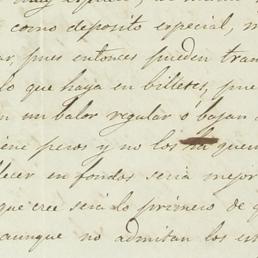 como deposito especial, m
ar, pues entonces pueden tran
lo que haya en billetes, pue
en un balor regular ó bajan
iene peros y no los ha quer
lecer en fondos seria mejor
que cree será lo primero de q
aunque no admitan los es